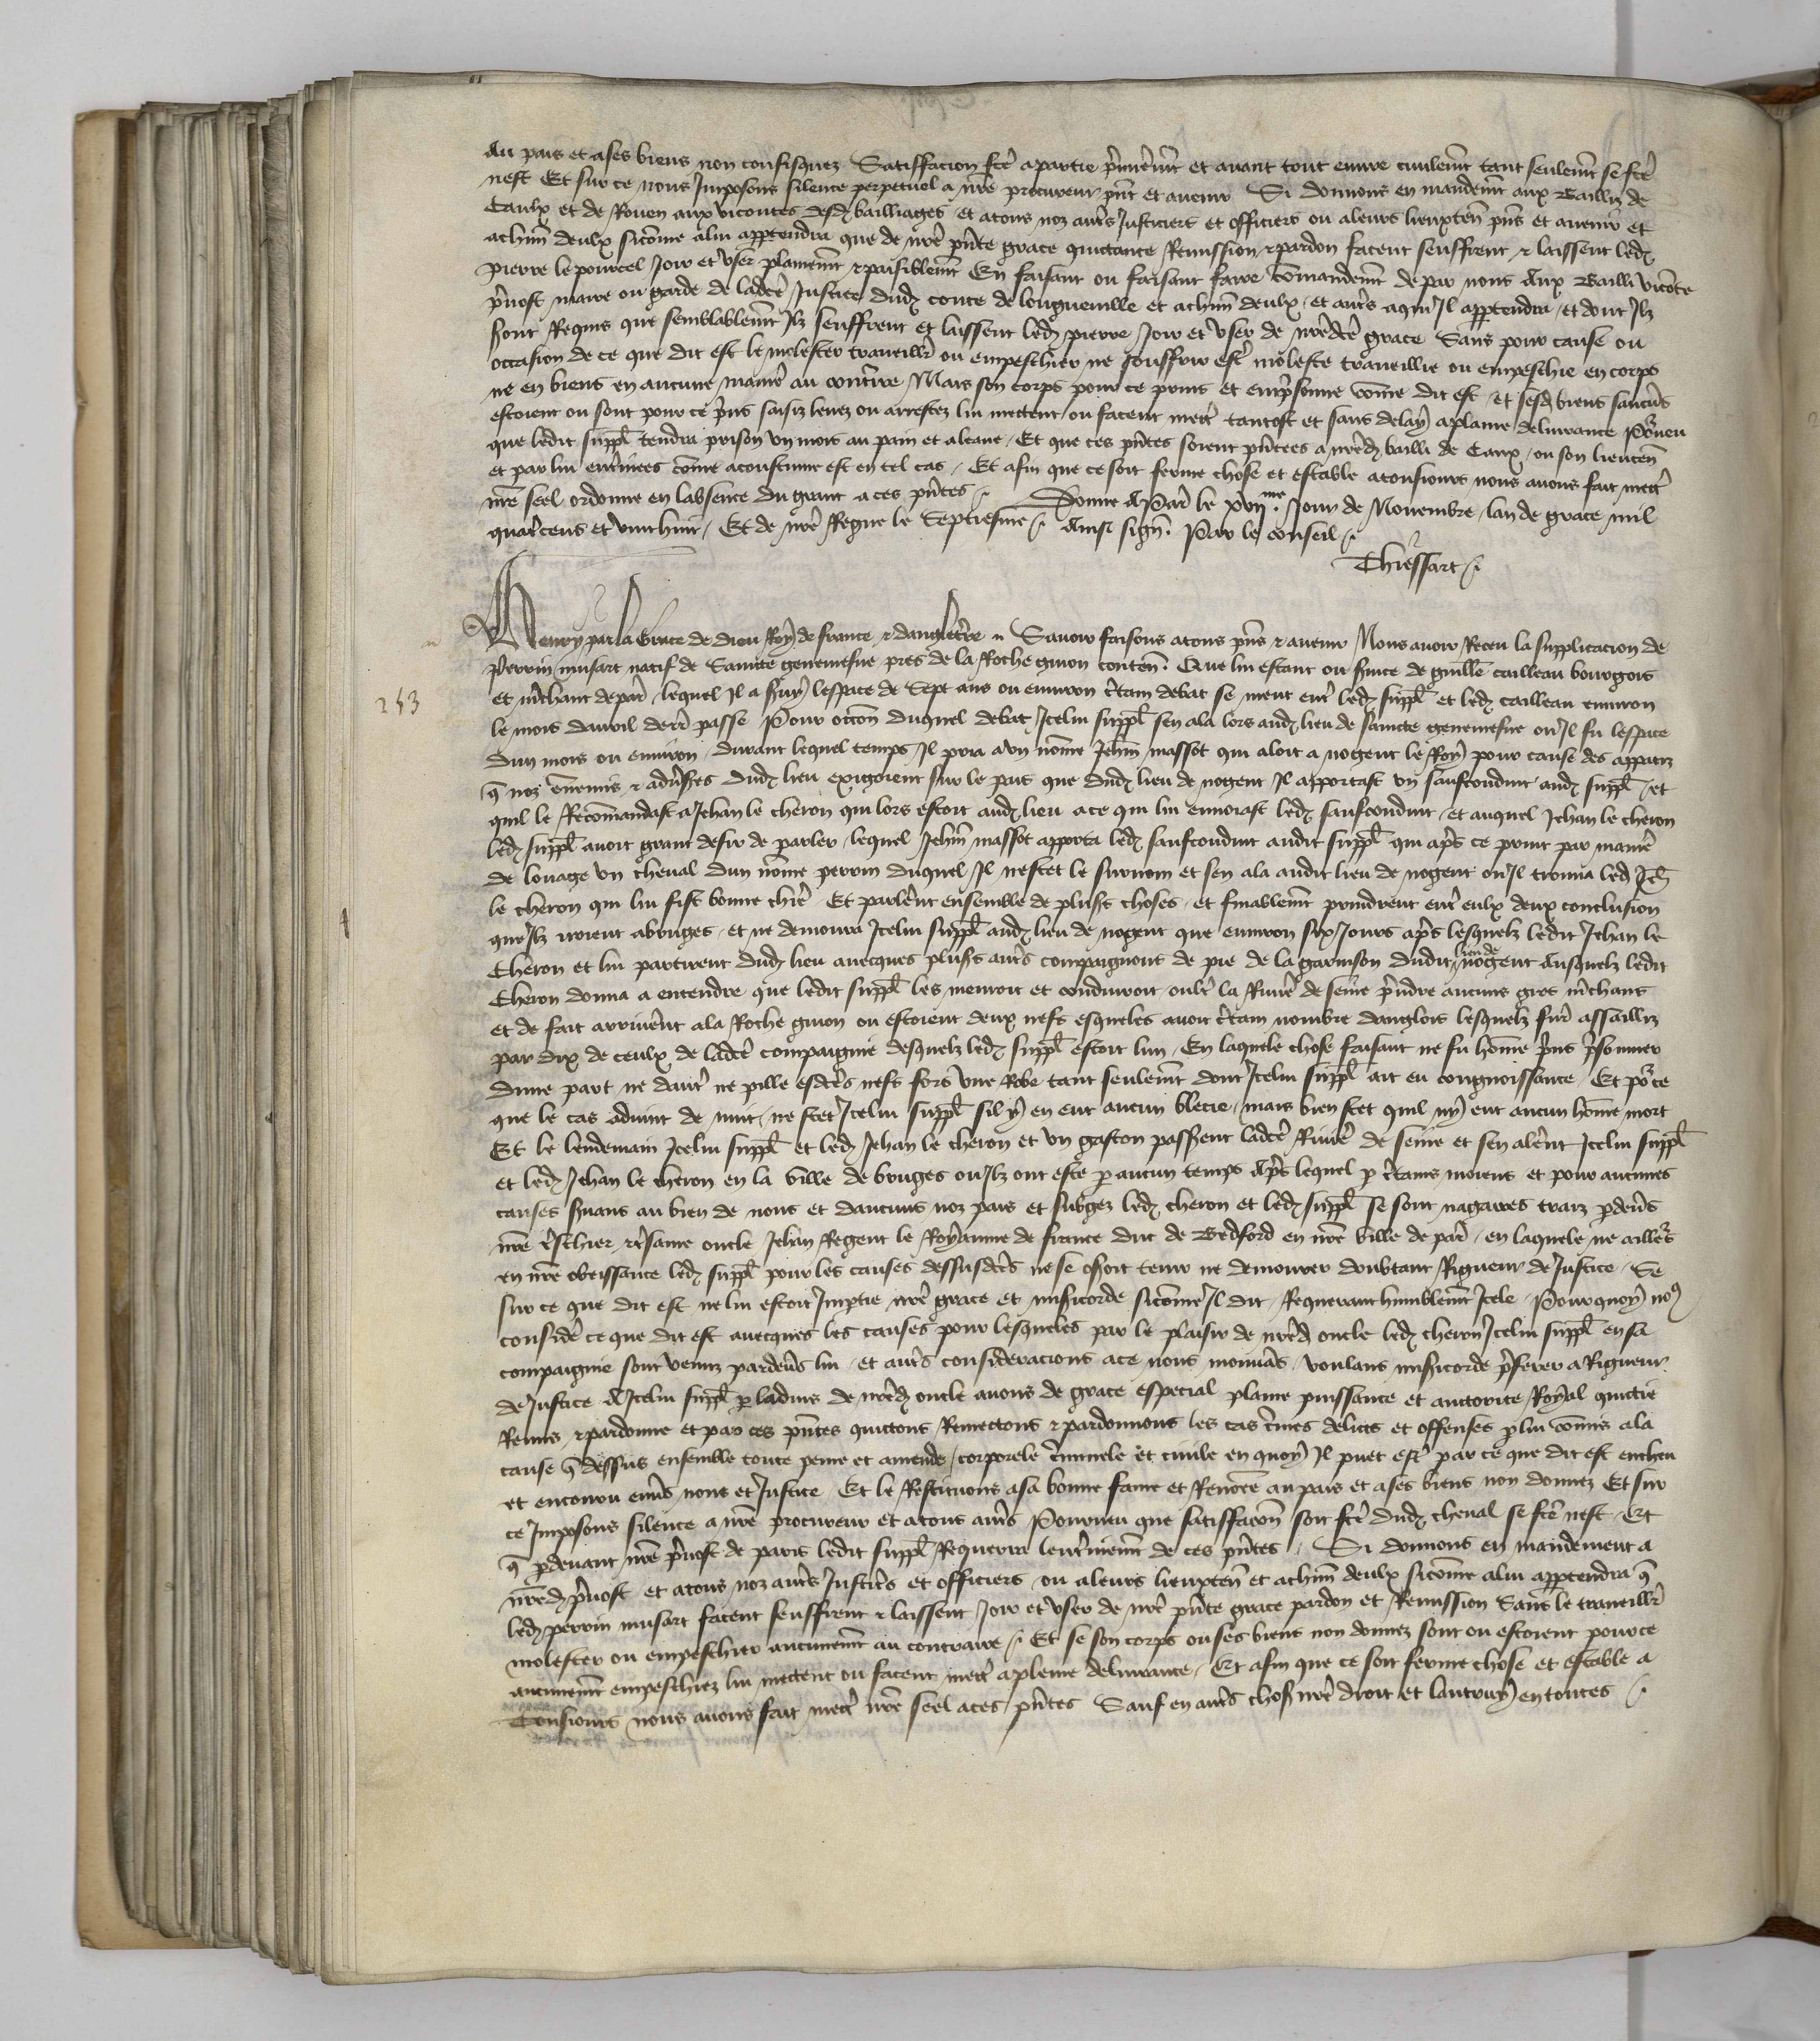 Au pais et a ses biens non confisquez Satisfacion fcẽ a partie p̃mierem̃t et avant tout euvre civilem̃t tant seulem̃t se fcẽ
nest Et sur ce nous Imposons silence perpetuel a nr̃e procureur p̃nt et avenir Si donnons en mandem̃t aux Bailliz de
Caulx et de Rouen aux vicontes desd bailliages et a tous noz aut̃s Justiciers et officiers ou a leurs lieuxten̄ p̃ns et avenir et
a ch̃un deulx sicom̄e a lui appartendra que de nr̃e p̃nte grace quittance Remission & pardon facent seuffrent & laissent led
pierre le pourcel Joir et user plainem̃t & paisiblem̃t En faisant ou faisant faire com̄andem̃t de par nous Aux Bailli viconte
p̃vost maire ou garde de ladcẽ Justice dud conte de longueville et a ch̃un deulx et aut̃s a qui Il appartendra et dont Ilz
seront Requis que semblablem̃t Ilz seuffrent et laissent led pierre Joir et user de nr̃edcẽ grace Sans pour cause ou
occasion de ce que dit est le molester travaillr̃ ou empeschier ne souffrir est̃ moleste travaillie ou empeschie en corps
ne en biens en aucune manier̃ au contr̃ire Mais son corps pour ce prins et emp̃sonne com̄e dit est et sesd biens s'aucũs
estoient ou sont pour ce p̃ns saisiz levez ou arrestez lui mettent ou facent mett̃ tantost et sans delay a plaine delivrance Pourveu
que ledit suppl̃ tendra prison un mois au pain et a leaue Et que ces p̃ntes soient p̃ntees a nr̃ed bailli de Caux ou son lieuten̄
et par lui ent̃inees com̄e acoustume est en tel cas Et afin que ce soit ferme chose et estable a tousiours nous avons fait mett̃
nr̃e seel ordonne en labsence du grant a ces p̃ntes Donne A Par̃ le xvij.me Jour de Novembre lan de grace mil
quat̃cens et vint huit Et de nr̃e Regne le Septiesme Ainsi sign̄. Par le conseil
Thiessart
Henry par la Grace de Dieu Roy de france & dangleter̃re Savoir faisons a tous p̃ns & avenir Nous avoir Receu la supplicacion de
Perrin musart natif de Saincte genemefve pres de la Roche guion conten̄. Que lui estant ou s̃vice de guill̃e cailleau bourgois
et m̃chant de par̃ lequel Il a s̃vy lespace de Sept ans ou environ c̃tain debat se meut ent̃ led suppl̃ et led cailleau environ
le mois davril derr̃ passe Pour occõn duquel debat Icelui suppl̃ sen ala lors aud lieu de saincte genemefve ou Il fu lespace
dun mois ou environ durant lequel temps Il pria a un nom̄e Jeh̃n massot qui aloit a nogent le Roy pour cause des appatiz
q̃ noz ennemis & adṽs̃es dud lieu exigoient sur le pais que dud lieu de nogent Il apportast un saufconduit aud suppl̃ et
quil le Recom̄andast a Jehan le cheron qui lors estoit aud lieu a ce qui lui envoiast led saufconduit et auquel Jehan le cheron
led suppl̃ avoit grant desir de parler lequel Jeh̃n massot apporta led saufconduit audit suppl̃ qui ap̃s ce print par manier̃
de louage un cheval dun nom̄e perrin duquel Il ne scet le surnom et sen ala audit lieu de nogent ou Il trouva led Jeh̃
le cheron qui lui fist bonne chier̃ Et parler̃nt ensemble de plus̃s choses et finablem̃t prindrent ent̃ eulx deux conclusion
que Ilz iroient a bruges et ne demoura Icelui suppl̃ aud lieu de nogent que environ six Jours ap̃s lesquelz ledit Jehan le
Cheron et lui partirent dud lieu avecques plus̃s aut̃s compaignons de pie de la garnison dudit lieu de nogent Ausquelz ledit
Cheron donna a entendre que ledit suppl̃ les menroit et conduiroit oult̃ la Rivier̃ de seine p̃ndre aucuns gros m̃chans
et de fait arriver̃nt a la Roche guion ou estoient deux nefs esqueles avoit c̃tain nombre danglois lesquelz fur̃ assailliz
par dix de ceulx de ladcẽ compaignie desquelz led suppl̃ estoit lun En laquele chose faisant ne fu hom̄e p̃ns p̃sonnier
dune part ne daut̃ ne pille esdcẽs nefs fors une Robe tant seulem̃t dont Icelui suppl̃ ait eu congnoissance Et po͂ ce
que le cas advint de nuit ne scet Icelui suppl̃ sil y en eut aucun blecie mais bien scet quil ny eut aucun hom̄e mort
Et le lendemain Icelui suppl̃ et led Jehan le cheron et un gascon passer̃ent ladcẽ Rivier̃ de seine et sen aler̃nt Icelui suppl̃
et led Jehan le cheron en la ville de bruges ou Ilz ont este p aucun temps Ap̃s lequel p c̃tains moiens et pour aucunes
causes s̃vans au bien de nous et daucuns noz pais et subgez led cheron et led suppl̃ se sont nagaires traiz p̃deṽs
nr̃e t̃schier & t̃same oncle Jehan Regent le Royaume de france duc de Bedford en nr̃e ville de par̃ en laquele ne aillr̃s
en nr̃e obeissance led suppl̃ pour les causes dessusdcẽs ne se osoit tenir ne demourer doubtant Rigueur de Justice Se
sur ce que dit est ne lui estoit Imp̃tie nr̃e grace et mis̃icorde sicom̄e Il dit Requerant humblem̃t Icele Pourquoy nous
consider̃ ce que dit est avecques les causes pour lesqueles par le plaisir de nr̃ed oncle led cheron Icelui suppl̃ en sa
compaignie sont venuz pardeṽs lui et aut̃s consideracions a ce nous mouvãs voulans mis̃icorde p̃ferer a Rigueur
de Justice A Icelui suppl̃ p ladvis de nr̃ed oncle avons de grace especial plaine puissance et auctorite Royal quictie
Remis & pardonne et par ces p̃ntes quictons Remettons & pardonnons les cas c̃mes delicts et offenses p lui com̄is a la
cause q̃ dessus ensemble toute peine et amende corporele c̃minele et civile en quoy Il puet est̃ par ce que dit est encheu
et encouru enṽs nous et Justice Et le Restituons a sa bonne fame et Renom̄ee au pais et a ses biens non donnez Et sur
ce Imposons silence a nr̃e procureur et a tous aut̃s Pourveu que satisfacõn soit fcẽ dud cheval se fcẽ nest Et
q̃ p̃devant nr̃e p̃vost de paris ledit suppl̃ Requerra lent̃inem̃t de ces p̃ntes Si donnons en mandement a
nr̃ed p̃vost et a tous noz aut̃s Justic̃s et officiers ou a leurs lieuxten̄ et a ch̃un deulx sicom̄e a lui appartendra q̃
led perrin musart facent seuffrent & laissent Joir et user de nr̃e p̃nte grace pardon et Remission Sans le travaillr̃
molester ou empeschier aucunem̃t au contraire Et se son corps ou ses biens non donnez sont ou estoient pour ce
aucunem̃t empeschiez lui mettent ou facent mett̃ a pleine delivrance Et afin que ce soit ferme chose et estable a
Tousiours nous avons fait mett̃ nr̃e seel a ces p̃ntes Sauf en aut̃s chos̃ nr̃e droit et lautruy en toutes
253